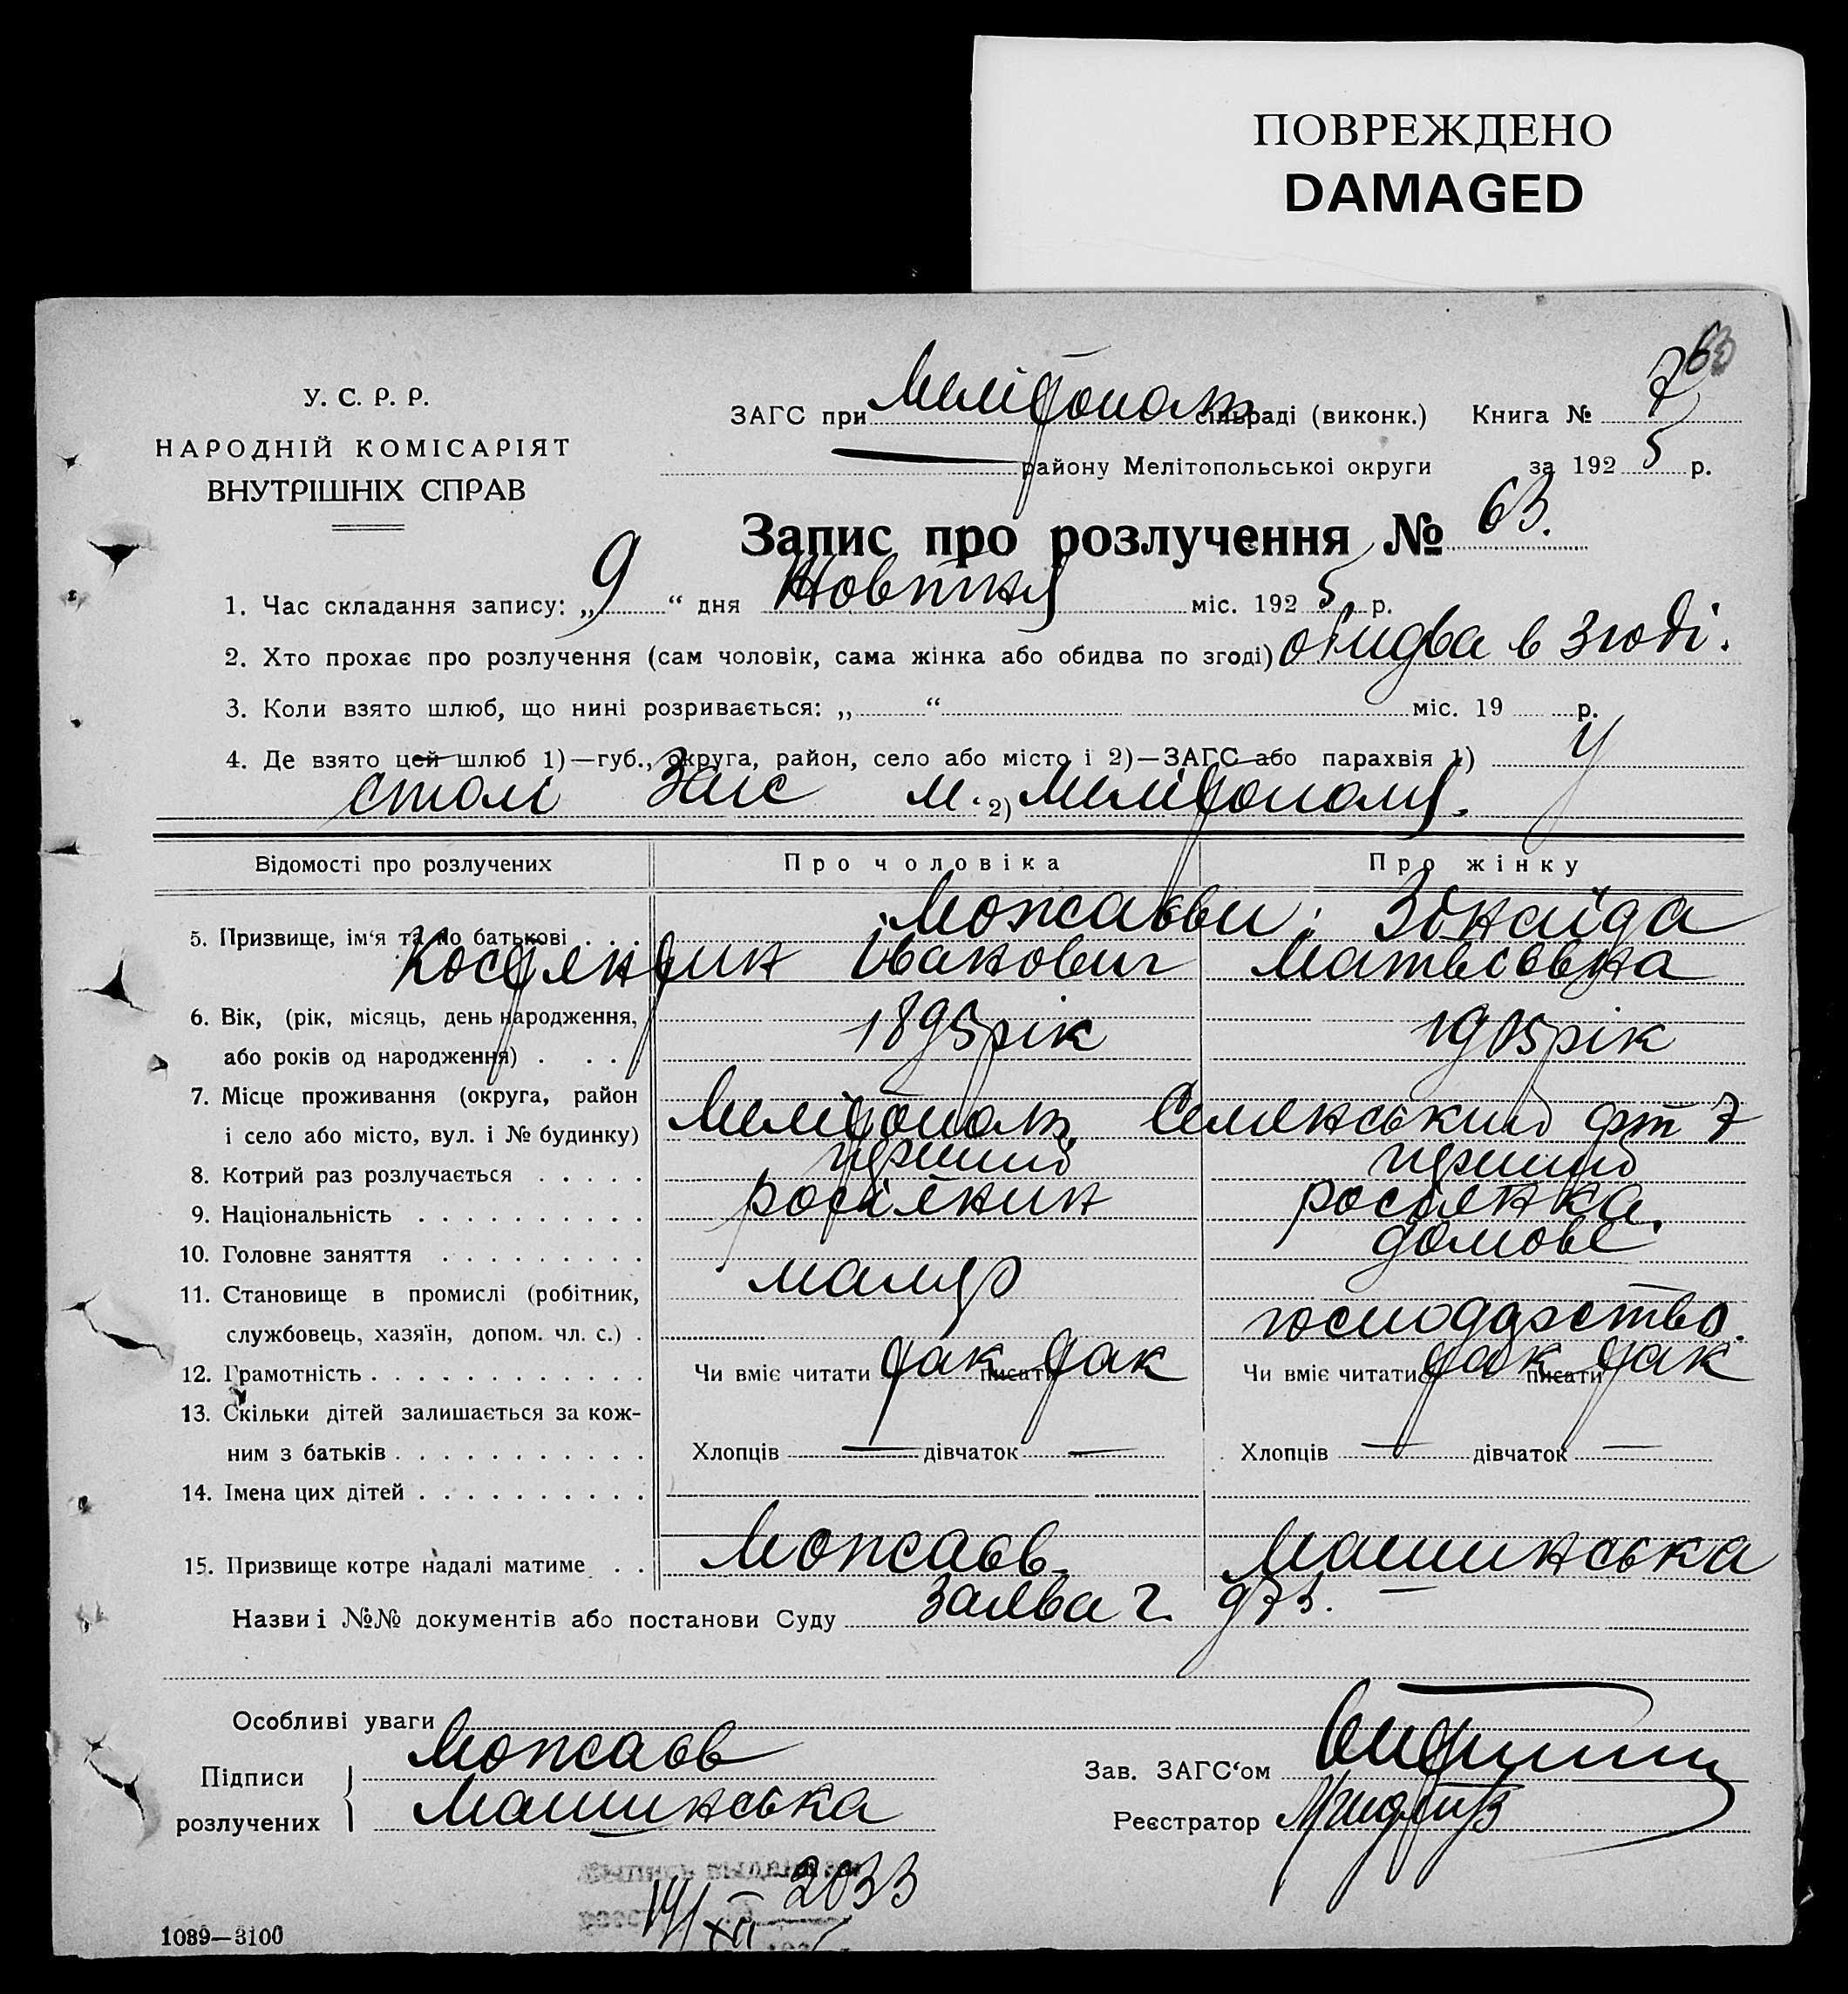 ПОВРЕЖДЕНО
DAMAGED
63
У. С. Р. Р.
НАРОДНІЙ КОМІСАРІЯТ
ВНУТРІШНІХ СПРАВ
ЗАГС при Мелітополь сільраді (виконк.) Книга № 7
— району Мелітопольської округи за 1925 р.
Запис про розлучення № 63.
1. Час складання запису: „9“ дня Жовтня міс. 1925 р.
2. Хто прохає про розлучення (сам чоловік, сама жінка або обидва по згоді) обидва в згоді.
3. Коли взято шлюб, що нині розривається: „ “ міс. 19 р.
4. Де взято цей шлюб 1)—губ., округа, район, село або місто і 2)—ЗАГС або парахвія 1) У
столі Загс м. 2) Мелітополя.
Відомості про розлучених Про чоловіка Про жінку
5. Призвище, ім‘я та по батькові . . . Можаєви: Зінаїда
Костянтин Іванович Матвієвна
6. Вік, (рік, місяць, день народження, 1895 рік 1905 рік
або років од народження) . . . .
7. Місце проживання (округа, район
і село або місто, вул. і № будинку) Мелітополь, 7
8. Котрий раз розлучається . . . . . перший перший
9. Національність . . . . . . . . . . росіянин росіянка.
10. Головне заняття . . . . . . . . . домове
11. Становище в промислі (робітник, маляр
службовець, хазяїн, допом. чл. с.) . господарство.
12. Грамотність . . . . . . . . . . . . Чи вміє читати так писати так Чи вміє читати так писати так
13. Скільки дітей залишається за кож-
ним з батьків . . . . . . . . . . . Хлопців — дівчаток — Хлопців — дівчаток —
14. Імена цих дітей . . . . . . . . . .
15. Призвище котре надалі матиме . . Можаєв Машинська
Назви і №№ документів або постанови Суду Заява ч. 973. —
Особливі уваги
Підписи Можаєв Зав. ЗАГС‘ом
розлучених Машинська Реєстратор
2033
XII
1039—3100